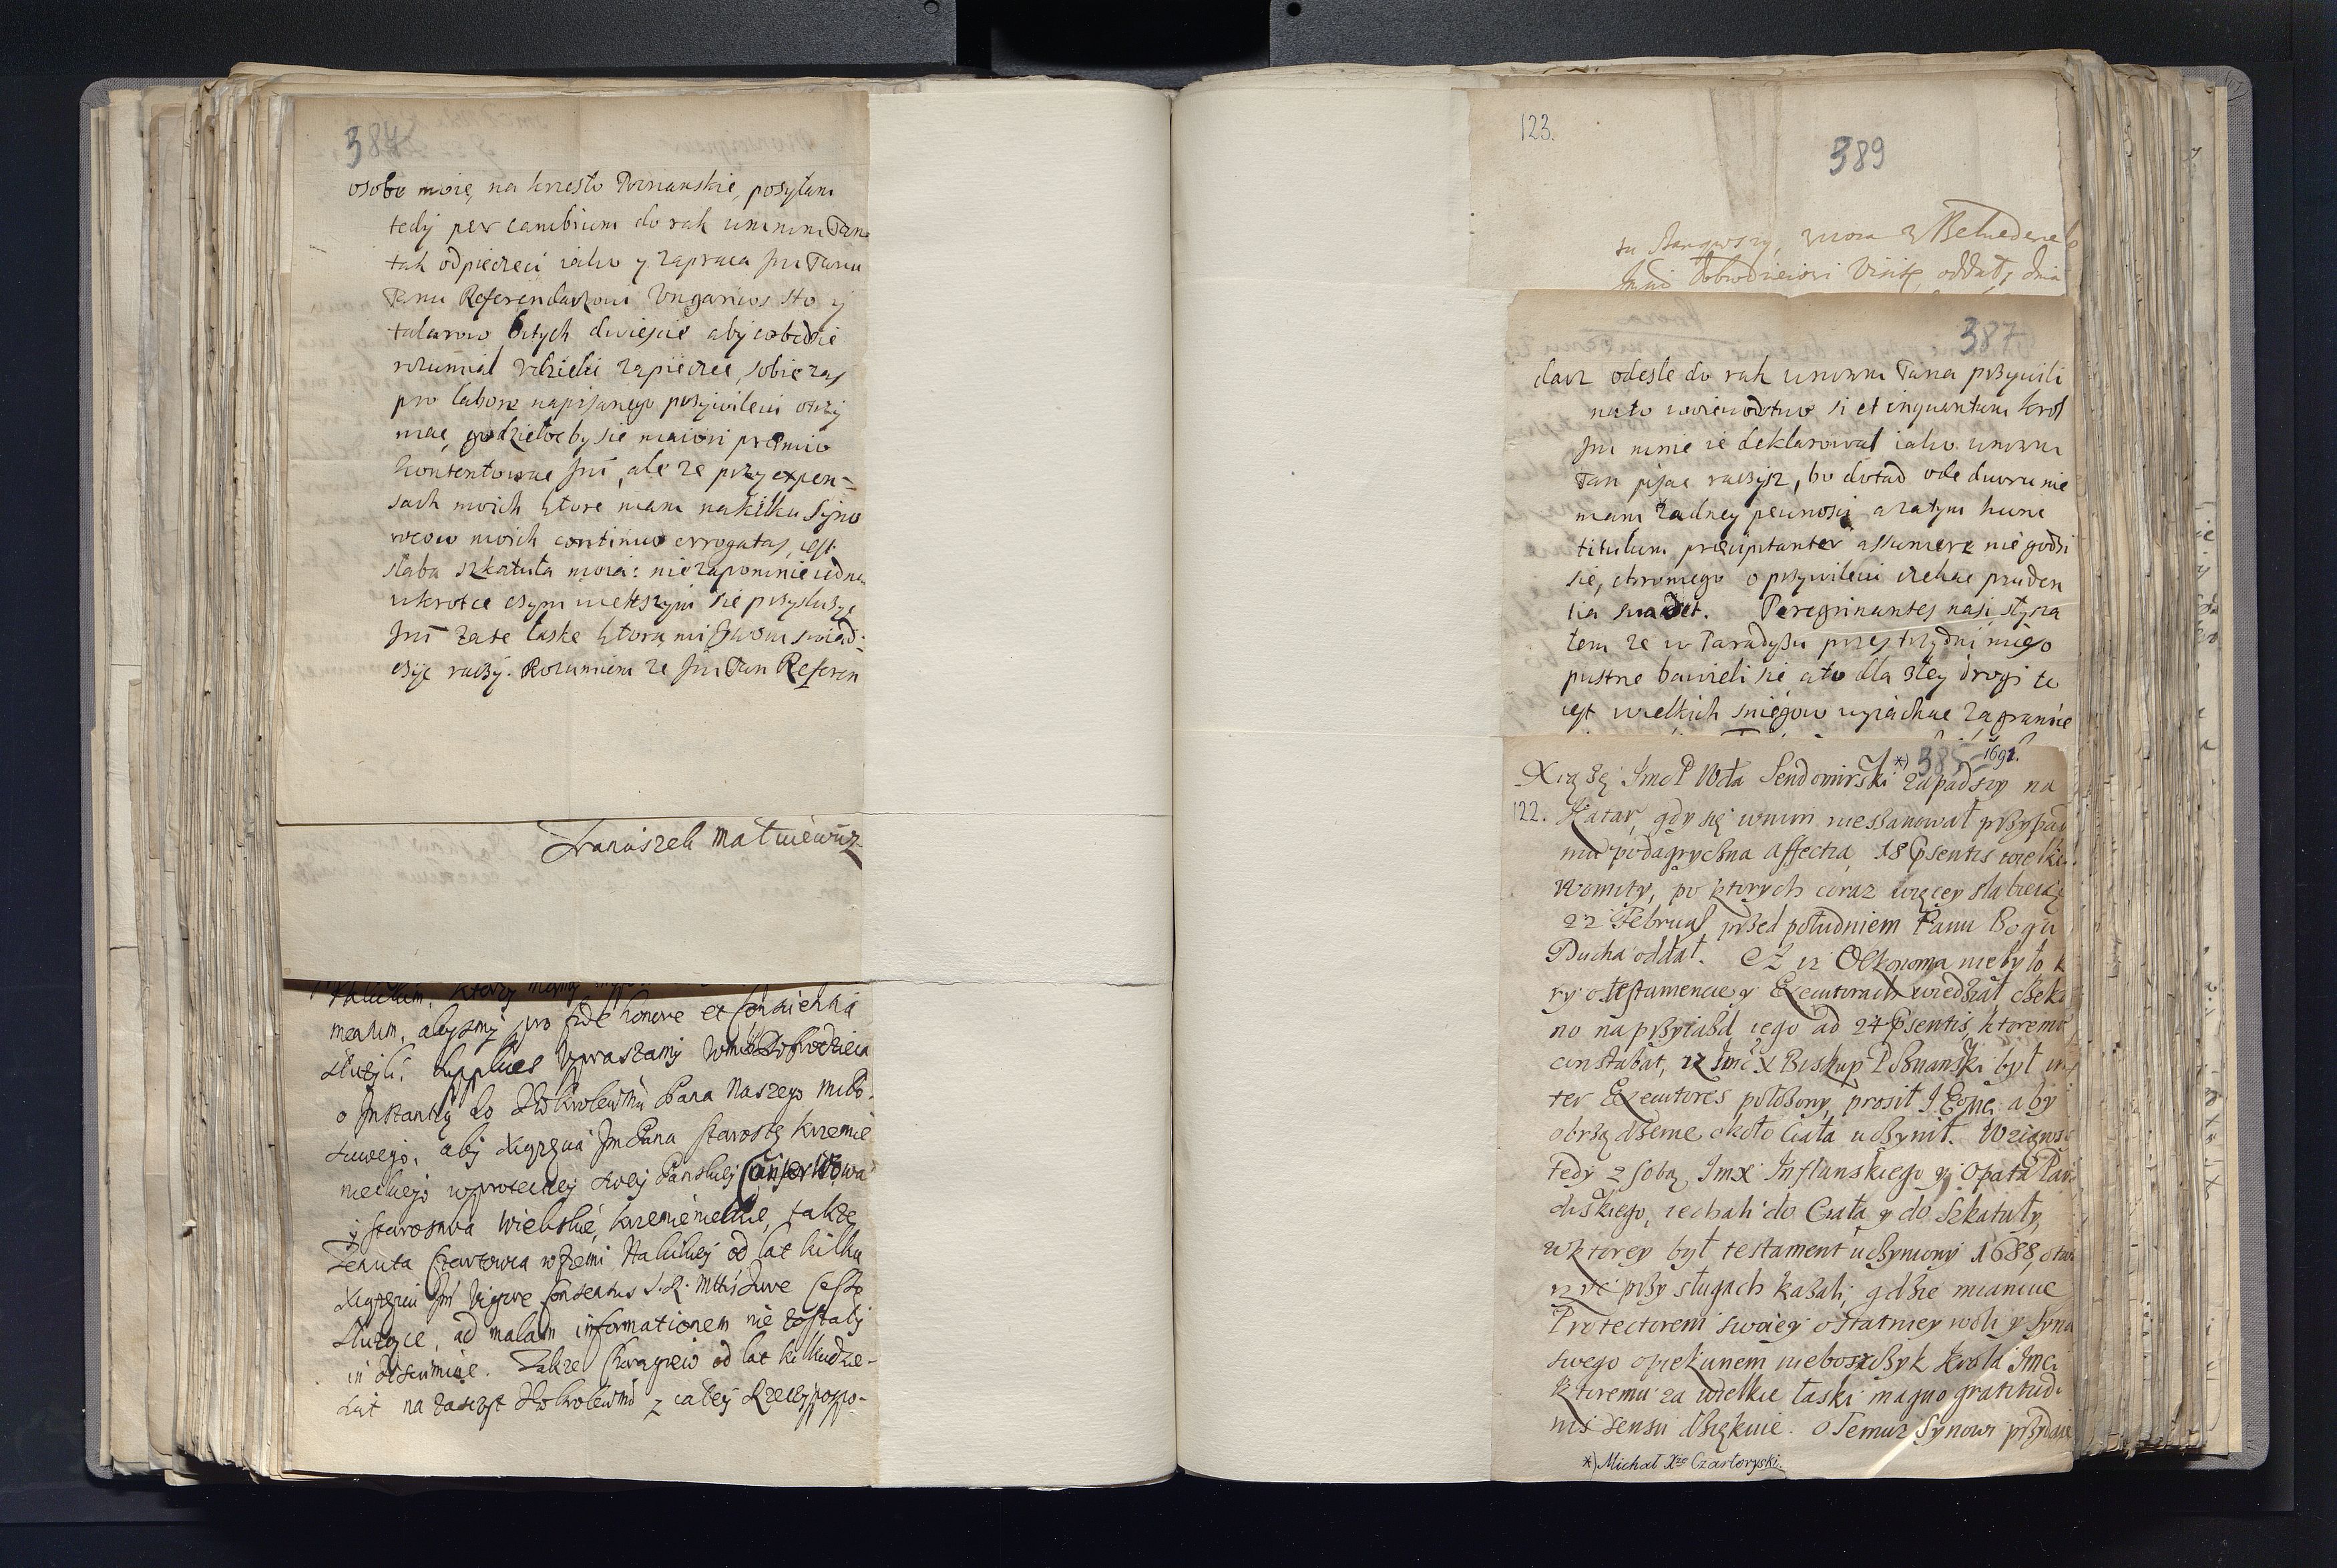 384
osobe moię, na krzesło Poznanskie, posyłam
tedy per cambium do rak
tak odpieczeci iako y zapraca Jm Panu
Panu Referendarzowi Ungarico sto y
talarow bitych dwiescie aby
rozumiał zapieczec, sobie zas
pro labore napisanego przywileiu otrzy
mac, godziełoby sie maiori premio
kontentowac Jm, ale ze przy expen=
sach moich ktore mam na kilku Syno
wcow moich continuo errogatas, iest
słaba szkatuła moia: niezapomnie iedna
wkrotce czym wiekszym sie przysłużę
Jm zate łaske ktorą mi swiad=
czyc raczy. Rozumiem ze Jm Pan Referen
Franciszek Matuiewicz
Halickim, ktorzy mamy
mearum, abysmy pro fide honore et
służyli. supplices upraszamy Dobrodzieia
o Instantią do Krolewsku Pana Naszego Miło-
sciwego, aby Xiązęcia Jm Pana Starostę Krzemie
nieckiego wprotekcyi swey Panskiey
y starostwa Wielskie, krzemienieckie, takze
Tenuta Czartowca wZiemi Halickiey od lat kilku
Xiązęciu Jm Vigore Consensus S. R. Mttis Iure
służące, ad malam informationem nie zostały
in discrimine. Takze Chorągiew od lat kilkudzie-
siąt na zaszczyt Krolewsku z całey Rzeczypospo-
123.
389
z Belwederu
Dobrodzieiowi Visitę oddał, dnia
387
darz odesle do rak Pana przywili
nato woiewodztwo si et inquantum krol
Jm mnie ie deklarował iako
Pan pisac raczysz, bo dotad ode dworu nie
mam żadney pewnosci azatym hunc
titulum præcipitanter assumere nie godzi
sie, o przywileiu czekac pruden
tia suadet. Peregrinantes nasi słysza
łem ze w Paradyżu przez trzy dni
pustne bawieli sie ato dla złey drogi to
iest wielkich sniegow wyiachac za granice
*) 385 1692.
Xiążę Jmc P Wda Sendomirski zapadszy na
122. Katar, gdy się wnim nieszanował przypad
mu podagryczna affectia, 18 psentis wielkie
Womity, po ktorych coraz więcey słabieiąc
22 Februa przed południem Panu Bogu
Ducha oddał. Ez iz Oekonoma niebyło k
ry o testamencie y Exekutorach wiedział czeka
no na przyiazd iego ad 24 psentis, ktoremu
constabat, iz Jmc X Biskup Pznanski był in
ter Exekutores położony, prosił aby
obrządzenie około Ciała uczynił. Wziąws
tedy z sobą Jmx Inflanskiego y Opata Para
diskiego, iechali do Ciała y do Szkatuły,
wktorey był testament uczyniony 1688, otw
przy sługach kazali, gdzie mianuie
Protectorem swoiey ostatniey woli y syna
swego opiekunem nieboszczyk Krola Jmci
Ktoremu za wielkie łaski magno gratitudi
nis sensu dziękuie. O Temuz Synowi przydaie
*) Michał Xże Czartoryski.